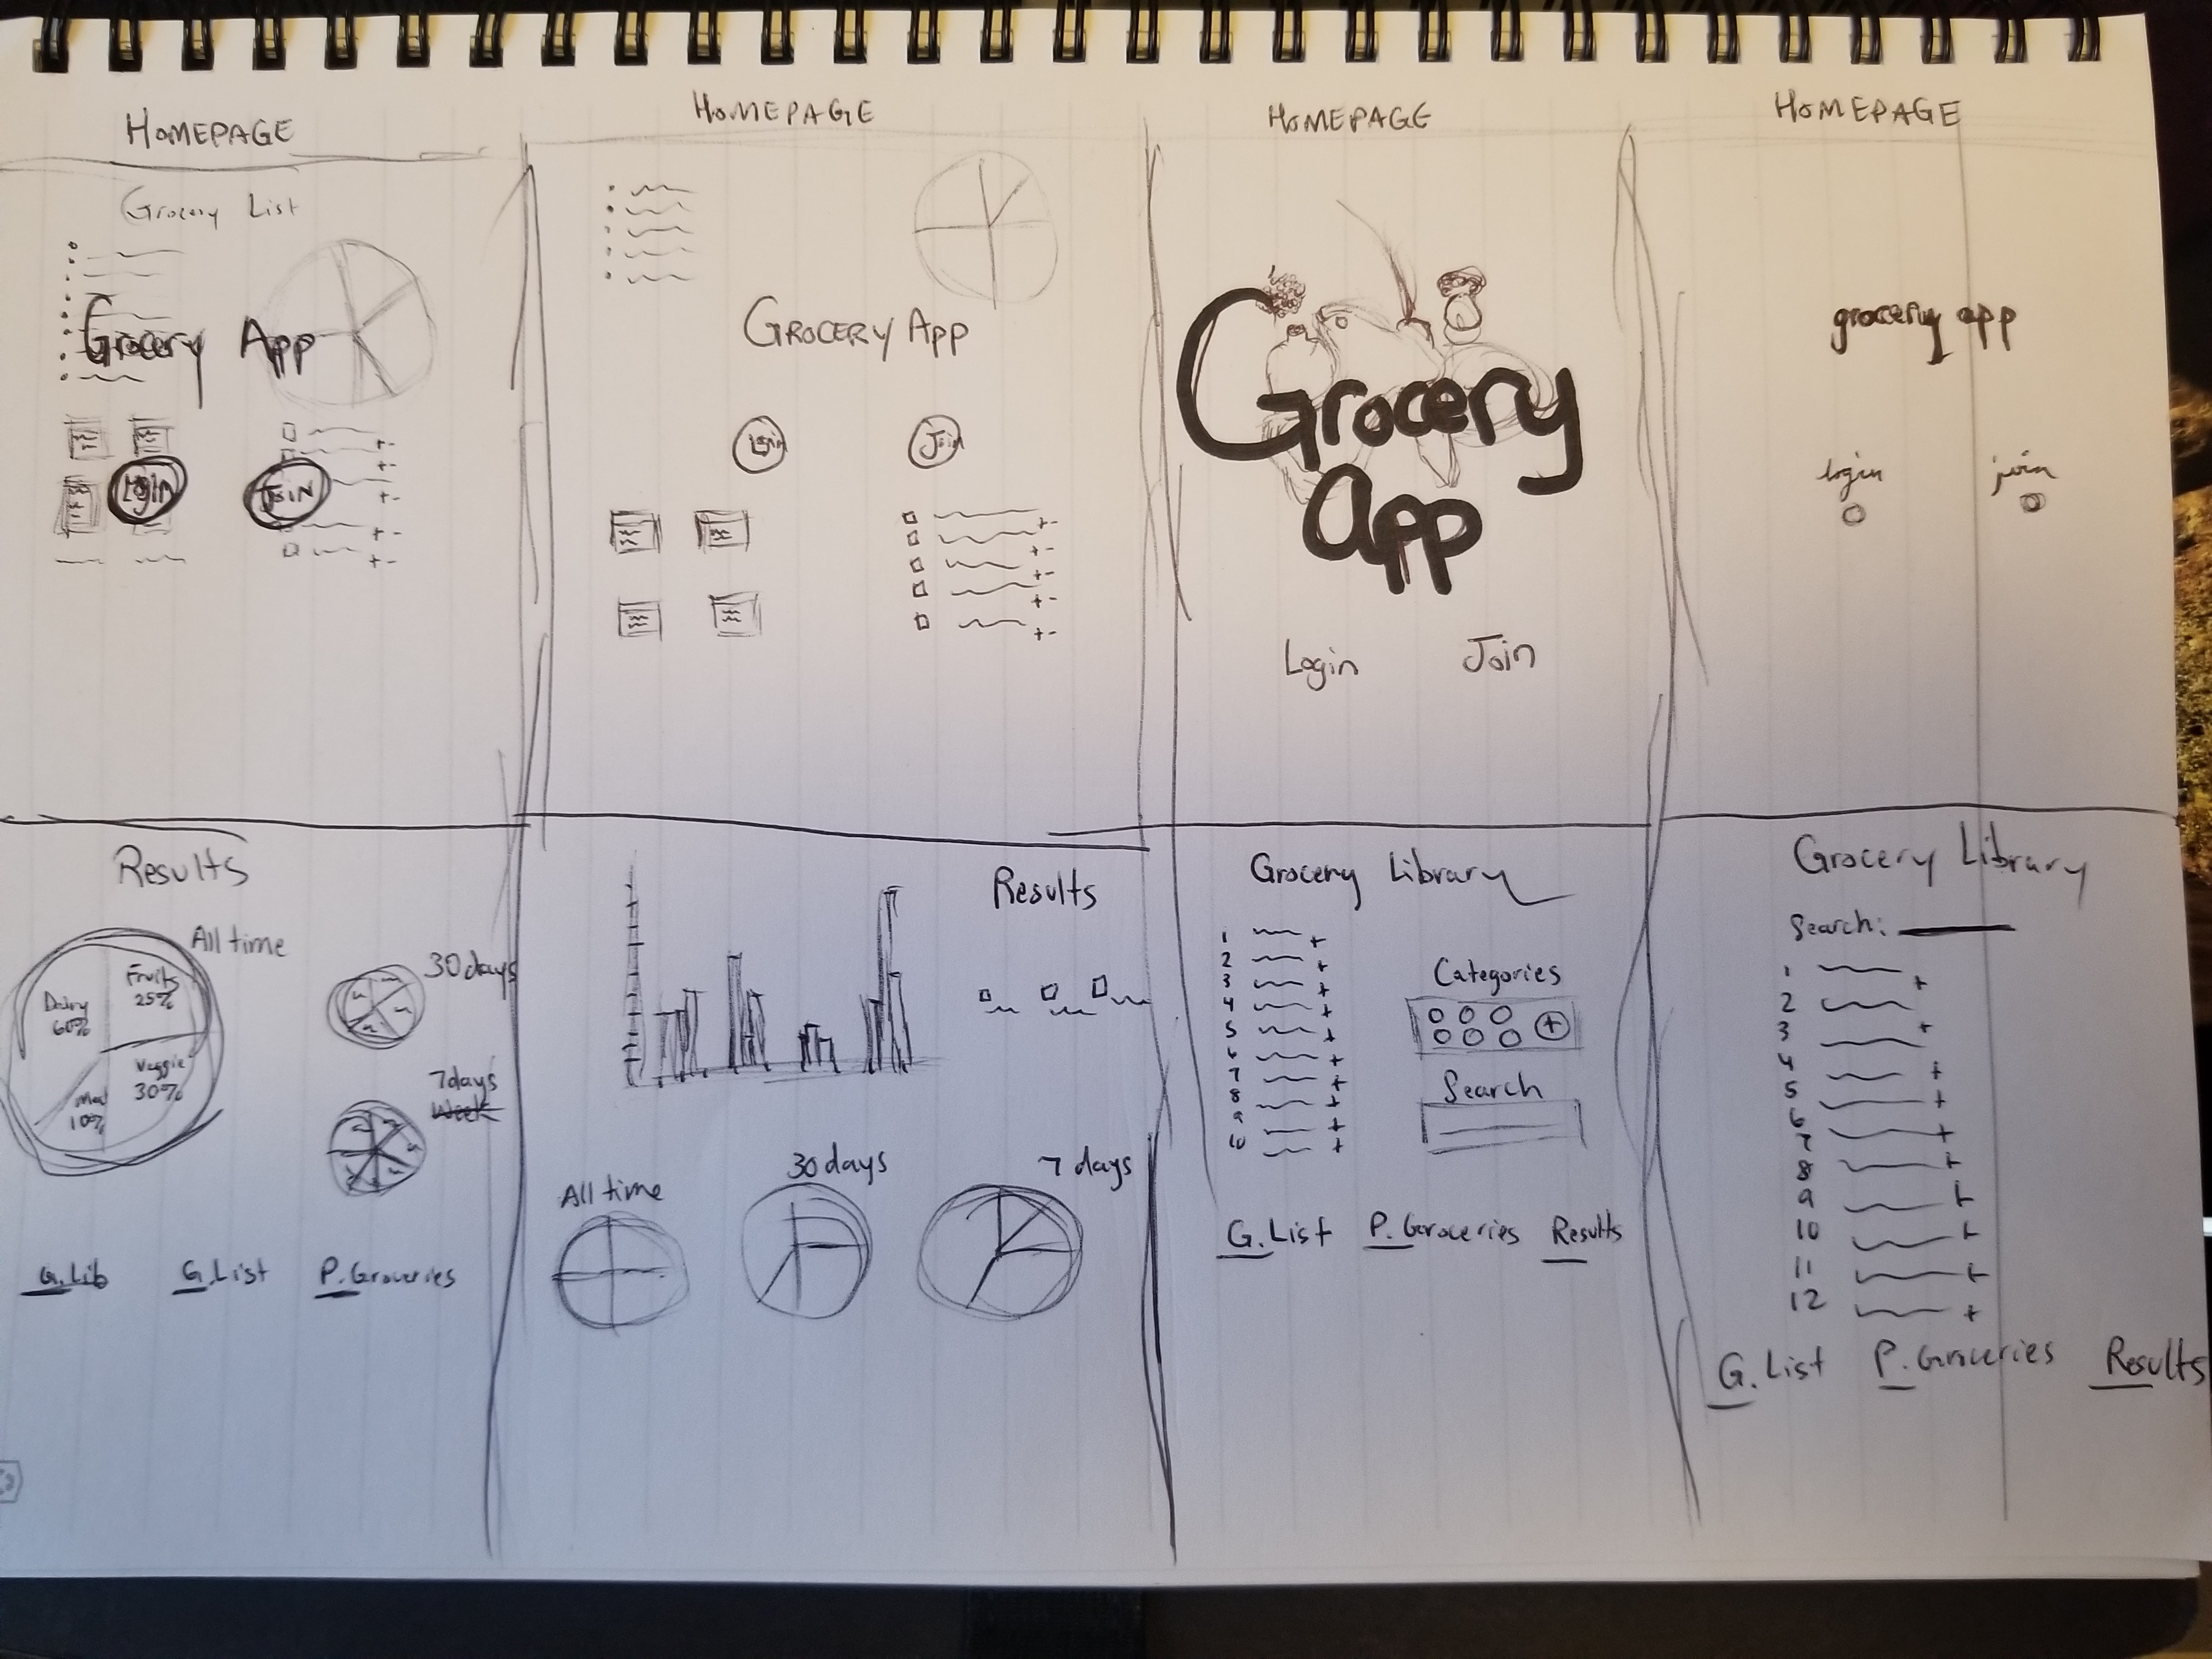 HOMEPAGE
Grocery List
Grocery App
Login
JOIN
HOMEPAGE
GROCERY APP
Login
Join
HOMEPAGE
Grocery
App
Login
Join
HOMEPAGE
grocery app
login
join
Results
All time
Fruits
25%
Dairy
60%
Veggie
30%
10%
30 days
7 days
Week
G. Lib
G. List
P. Groceries
Results
All time
30 days
7 days
Grocery Library
1
2
3
4
5
6
7
8
9
10
Categories
Search
G. List
P. Groceries
Results
Grocery Library
Search:
1
2
3
4
5
6
7
8
9
10
11
12
G. List
P. Groceries
Results